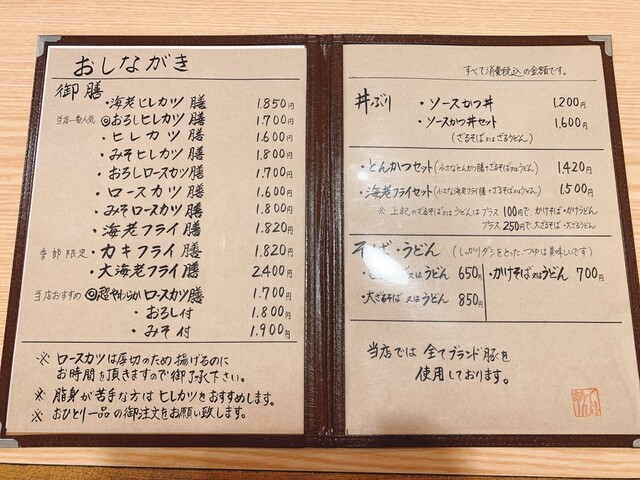 おしながき
御膳
・海老ヒレカツ膳 1.850円
当店一番人気 ◎おろしヒレカツ膳 1.700円
・ヒレカツ膳 1.600円
・みそヒレカツ膳 1.800円
・おろしロースカツ膳 1.700円
・ロースカツ膳 1.600円
・みそロースカツ膳 1.800円
・海老フライ膳 1.820円
季節限定・カキフライ膳 1.820円
・大海老フライ膳 2.400円
当店おすすめ ◎超やわらかロースカツ膳 1.700円
・おろし付 1.800円
・みそ付 1.900円
※ ロースカツは厚切のため揚げるのに
お時間を頂きますので御了承下さい。
※ 脂身が苦手な方はヒレカツをおすすめします。
※ おひとり一品の御注文をお願い致します。
すべて消費税込の金額です。
丼ぶり ・ソースかつ丼 1.200円
・ソースかつ丼セット 1.600円
(ざるそば又はざるうどん)
・とんかつセット(小さなとんかつ膳+ざるそば又はうどん) 1.420円
・海老フライセット(小さな海老フライ膳+ざるそば又はうどん) 1.500円
※ 上記のざるそば又はうどんはプラス100円で、かけそば・かけうどん
プラス250円で大ざるそば・大ざるうどん
そば・うどん (しっかりダシをとった、つゆは美味しいです)
又はうどん 650円 ・かけそば又はうどん 700円
・大ざるそば又はうどん 850円
当店では全てブランド豚を
使用しております。